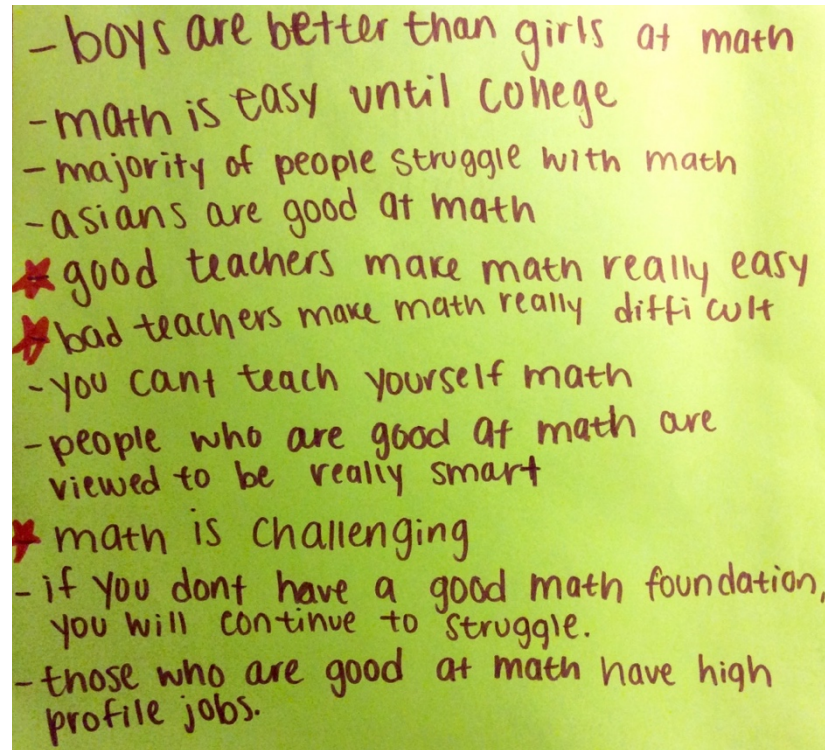 - boys are better than girls at math
- math is easy until college
- majority of people struggle with math
- asians are good at math
good teachers make math really easy
bad teachers make math really difficult
- you cant teach yourself math
- people who are good at math are
viewed to be really smart
math is challenging
- if you dont have a good math foundation,
you will continue to struggle.
- those who are good at math have high
profile jobs.